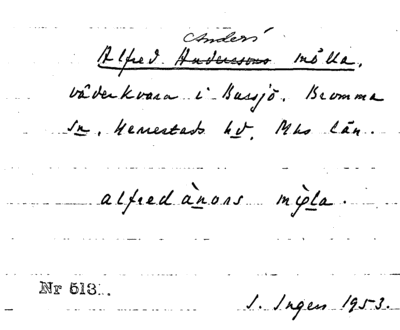 Anders'
Alfred Anderssons mölla,
väderkvarn i Bussjö. Bromma
sn, Herrestads hd, Mhs län.
alfred ànərs mỳla.
Nr 513.
I. Ingers 1953.